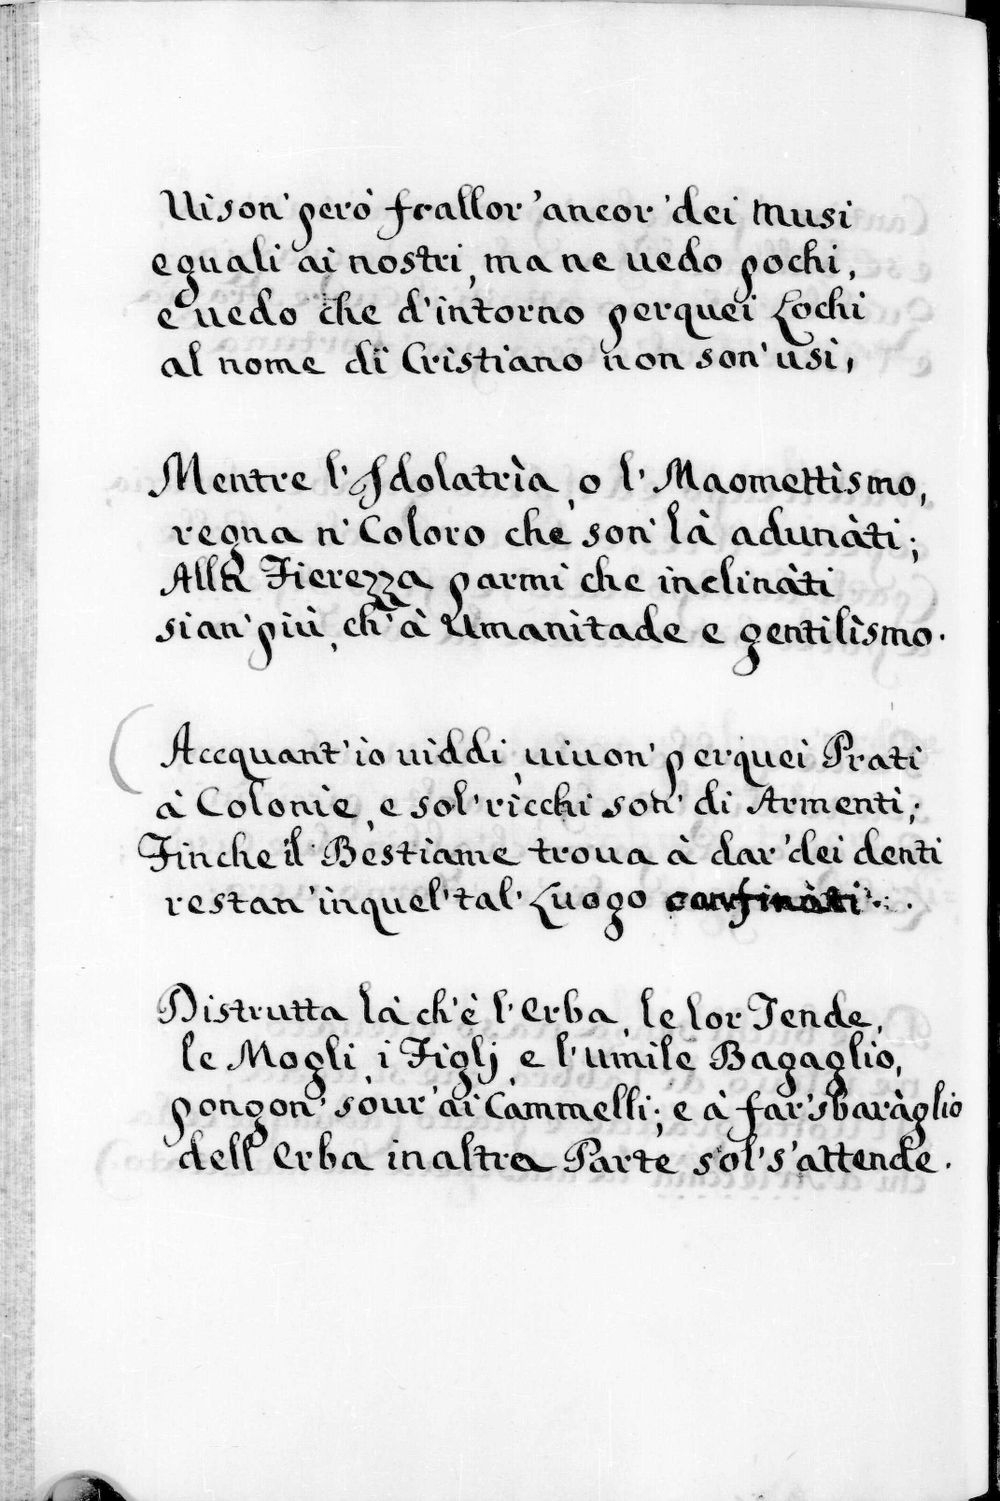 Ui son' però frallor' ancor' dei musi
eguali ai nostri, ma ne uedo pochi,
e uedo che d'intorno perquei Lochi
al nome di Cristiano non son' usi,
Mentre l'Idolatrìa, o l'Maomettìsmo,
regna n' Coloro che son' là adunàti;
Alla Fierezza parmi che inclinàti
sian' più, ch'à Umanitade e gentilìsmo.
Accquant' io uiddi, uiuon' perquei Prati
à Colonie, e sol' ricchi son' di Armenti;
Finche il Bestiame troua à dar' dei denti
restan' inquel' tal' Luogo confinàti.
Distrutta là ch'è l'Erba, le lor Tende,
le Mogli, i Figlj, e l'umile Bagaglio,
pongon' sour' ai Cammelli; e à far' sbaràglio
dell Erba inaltra Parte, sol' s'attende.